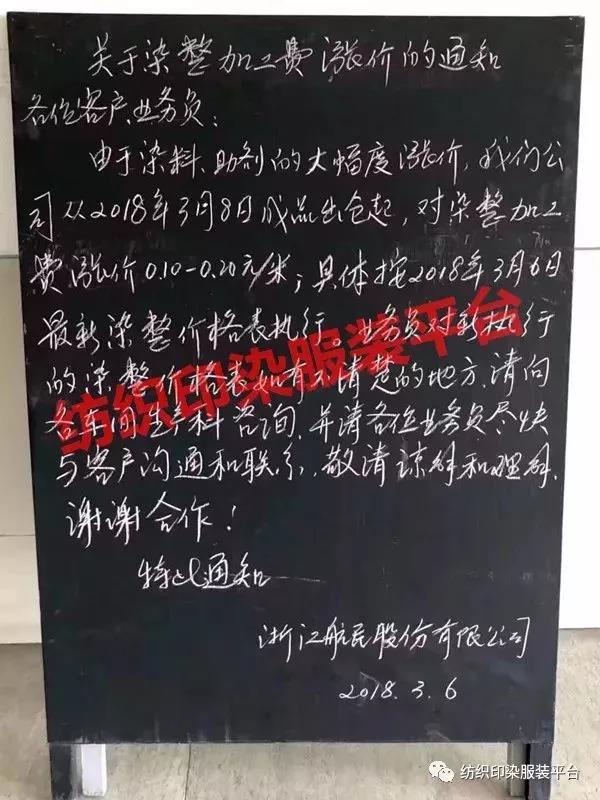 关于染整加工费涨价的通知
各位客户、业务员：
由于染料、助剂的大幅度涨价，我们公
司从2018年3月8日成品出仓起，对染整加工
费涨价0.10-0.20元/米；具体按2018年3月6日
最新染整价格表执行。业务员对新执行
的染整价格表如有不清楚的地方，请向
各车间生产科咨询，并请各位业务员尽快
与客户沟通和联系，敬请谅解和理解，
谢谢合作！
特此通知
浙江航民股份有限公司
2018.3.6
纺织印染服装平台
纺织印染服装平台